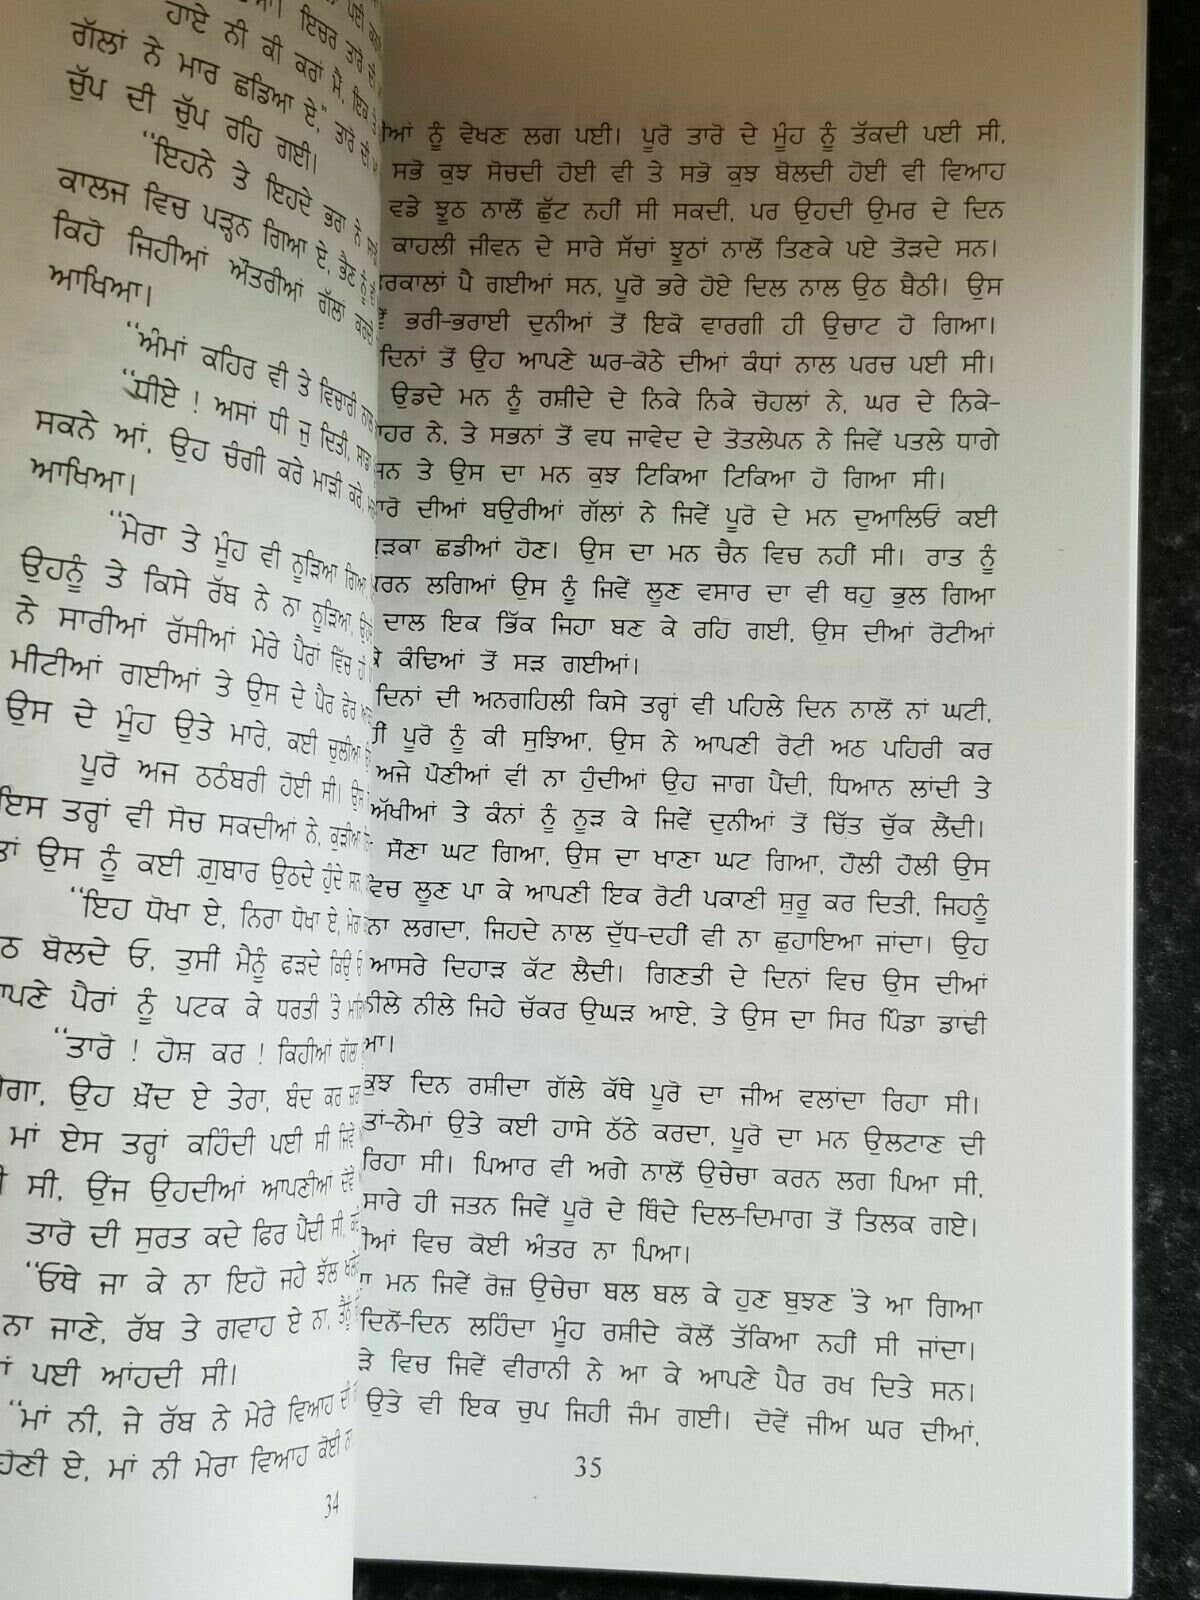 ਹਾਏ ਨੀ ਕੀ ਕਰਾਂ ਮੈਂ, ਇਕ
ਗੱਲਾਂ ਨੇ ਮਾਰ ਛਡਿਆ ਏ," ਤਾਰੋ ਦੀ
ਚੁੱਪ ਦੀ ਚੁੱਪ ਰਹਿ ਗਈ।
"ਇਹਨੇ ਤੇ ਇਹਦੇ ਭਰਾ ਨੇ
ਕਾਲਜ ਵਿਚ ਪੜ੍ਹਨ ਗਿਆ ਏ, ਭੈਣ ਨੂੰ
ਕਿਹੋ ਜਿਹੀਆਂ ਔਤਰੀਆਂ ਗੱਲਾਂ ਕਰਦੇ
ਆਖਿਆ।
"ਅੰਮਾਂ ਕਹਿਰ ਵੀ ਤੇ ਵਿਚਾਰੀ ਨਾਲ
"ਧੀਏ ! ਅਸਾਂ ਧੀ ਜੁ ਦਿਤੀ, ਸਾਡਾ
ਸਕਨੇ ਆਂ, ਉਹ ਚੰਗੀ ਕਰੇ ਮਾੜੀ ਕਰੇ,
ਆਖਿਆ।
"ਮੇਰਾ ਤੇ ਮੂੰਹ ਵੀ ਨੂੜਿਆ ਗਿਆ
ਉਹਨੂੰ ਤੇ ਕਿਸੇ ਰੱਬ ਨੇ ਨਾ ਨੂੜਿਆ,
ਨੇ ਸਾਰੀਆਂ ਰੱਸੀਆਂ ਮੇਰੇ ਪੈਰਾਂ ਵਿੱਚ ਹੀ
ਮੀਟੀਆਂ ਗਈਆਂ ਤੇ ਉਸ ਦੇ ਪੈਰ ਫੇਰ
ਉਸ ਦੇ ਮੂੰਹ ਉਤੇ ਮਾਰੇ, ਕਈ ਚੁਲੀਆਂ
ਪੂਰੋ ਅਜ ਠਠੰਬਰੀ ਹੋਈ ਸੀ। ਉਸ
ਇਸ ਤਰ੍ਹਾਂ ਵੀ ਸੋਚ ਸਕਦੀਆਂ ਨੇ, ਕੁੜੀਆਂ
ਤਾਂ ਉਸ ਨੂੰ ਕਈ ਗ਼ੁਬਾਰ ਉਠਦੇ ਹੁੰਦੇ ਸਨ,
"ਇਹ ਧੋਖਾ ਏ, ਨਿਰਾ ਧੋਖਾ ਏ, ਮੇਰਾ
ਬੋਲਦੇ ਓ, ਤੁਸੀਂ ਮੈਨੂੰ ਫੜਦੇ ਕਿਉਂ
ਪੈਰਾਂ ਨੂੰ ਪਟਕ ਕੇ ਧਰਤੀ 'ਤੇ
"ਤਾਰੋ ! ਹੋਸ਼ ਕਰ ! ਕਿਹੀਆਂ ਗੱਲਾਂ
ਉਹ ਖ਼ੌਂਦ ਏ ਤੇਰਾ, ਬੰਦ ਕਰ
ਮਾਂ ਏਸ ਤਰ੍ਹਾਂ ਕਹਿੰਦੀ ਪਈ ਸੀ ਜਿਵੇਂ
ਸੀ, ਉਂਜ ਉਹਦੀਆਂ ਆਪਣੀਆਂ ਦੋਵੇਂ
ਤਾਰੋ ਦੀ ਸੁਰਤ ਕਦੇ ਫਿਰ ਪੈਂਦੀ ਸੀ,
"ਓਥੇ ਜਾ ਕੇ ਨਾ ਇਹੋ ਜਹੇ ਝੱਲ
ਨਾ ਜਾਣੇ, ਰੱਬ ਤੇ ਗਵਾਹ ਏ ਨਾ,
ਪਈ ਆਂਹਦੀ ਸੀ।
"ਮਾਂ ਨੀ, ਜੇ ਰੱਬ ਨੇ ਮੇਰੇ ਵਿਆਹ ਦੀ
ਹੋਣੀ ਏ, ਮਾਂ ਨੀ ਮੇਰਾ ਵਿਆਹ ਕੋਈ
34
ਨੂੰ ਵੇਖਣ ਲਗ ਪਈ। ਪੂਰੋ ਤਾਰੋ ਦੇ ਮੂੰਹ ਨੂੰ ਤੱਕਦੀ ਪਈ ਸੀ,
ਸਭੋ ਕੁਝ ਸੋਚਦੀ ਹੋਈ ਵੀ ਤੇ ਸਭੋ ਕੁਝ ਬੋਲਦੀ ਹੋਈ ਵੀ ਵਿਆਹ
ਵਡੇ ਝੂਠ ਨਾਲੋਂ ਛੁੱਟ ਨਹੀਂ ਸੀ ਸਕਦੀ, ਪਰ ਉਹਦੀ ਉਮਰ ਦੇ ਦਿਨ
ਕਾਹਲੀ ਜੀਵਨ ਦੇ ਸਾਰੇ ਸੱਚਾਂ ਝੂਠਾਂ ਨਾਲੋਂ ਤਿਣਕੇ ਪਏ ਤੋੜਦੇ ਸਨ।
ਤਰਕਾਲਾਂ ਪੈ ਗਈਆਂ ਸਨ, ਪੂਰੋ ਭਰੇ ਹੋਏ ਦਿਲ ਨਾਲ ਉਠ ਬੈਠੀ। ਉਸ
ਭਰੀ-ਭਰਾਈ ਦੁਨੀਆਂ ਤੋਂ ਇਕੋ ਵਾਰਗੀ ਹੀ ਉਚਾਟ ਹੋ ਗਿਆ।
ਦਿਨਾਂ ਤੋਂ ਉਹ ਆਪਣੇ ਘਰ-ਕੋਠੇ ਦੀਆਂ ਕੰਧਾਂ ਨਾਲ ਪਰਚ ਪਈ ਸੀ।
ਉਡਦੇ ਮਨ ਨੂੰ ਰਸ਼ੀਦੇ ਦੇ ਨਿਕੇ ਨਿਕੇ ਚੋਹਲਾਂ ਨੇ, ਘਰ ਦੇ ਨਿਕੇ-
ਆਹਰ ਨੇ, ਤੇ ਸਭਨਾਂ ਤੋਂ ਵਧ ਜਾਵੇਦ ਦੇ ਤੋਤਲੇਪਨ ਨੇ ਜਿਵੇਂ ਪਤਲੇ ਧਾਗੇ
ਸਨ ਤੇ ਉਸ ਦਾ ਮਨ ਕੁਝ ਟਿਕਿਆ ਟਿਕਿਆ ਹੋ ਗਿਆ ਸੀ।
ਤਾਰੋ ਦੀਆਂ ਬਉਰੀਆਂ ਗੱਲਾਂ ਨੇ ਜਿਵੇਂ ਪੂਰੋ ਦੇ ਮਨ ਦੁਆਲਿਓਂ ਕਈ
ਤੁੜਕਾ ਛਡੀਆਂ ਹੋਣ। ਉਸ ਦਾ ਮਨ ਚੈਨ ਵਿਚ ਨਹੀਂ ਸੀ। ਰਾਤ ਨੂੰ
ਕਰਨ ਲਗਿਆਂ ਉਸ ਨੂੰ ਜਿਵੇਂ ਲੂਣ ਵਸਾਰ ਦਾ ਵੀ ਥਹੁ ਭੁਲ ਗਿਆ
ਦਾਲ ਇਕ ਭਿੱਕ ਜਿਹਾ ਬਣ ਕੇ ਰਹਿ ਗਈ, ਉਸ ਦੀਆਂ ਰੋਟੀਆਂ
ਕੰਢਿਆਂ ਤੋਂ ਸੜ ਗਈਆਂ।
ਦਿਨਾਂ ਦੀ ਅਨਗਹਿਲੀ ਕਿਸੇ ਤਰ੍ਹਾਂ ਵੀ ਪਹਿਲੇ ਦਿਨ ਨਾਲੋਂ ਨਾਂ ਘਟੀ,
ਪੂਰੋ ਨੂੰ ਕੀ ਸੁਝਿਆ, ਉਸ ਨੇ ਆਪਣੀ ਰੋਟੀ ਅਠ ਪਹਿਰੀ ਕਰ
ਅਜੇ ਪੌਣੀਆਂ ਵੀ ਨਾ ਹੁੰਦੀਆਂ ਉਹ ਜਾਗ ਪੈਂਦੀ, ਧਿਆਨ ਲਾਂਦੀ ਤੇ
ਅੱਖੀਆਂ ਤੇ ਕੰਨਾਂ ਨੂੰ ਨੂੜ ਕੇ ਜਿਵੇਂ ਦੁਨੀਆਂ ਤੋਂ ਚਿੱਤ ਚੁੱਕ ਲੈਂਦੀ।
ਸੌਣਾ ਘਟ ਗਿਆ, ਉਸ ਦਾ ਖਾਣਾ ਘਟ ਗਿਆ, ਹੌਲੀ ਹੌਲੀ ਉਸ
ਵਿਚ ਲੂਣ ਪਾ ਕੇ ਆਪਣੀ ਇਕ ਰੋਟੀ ਪਕਾਣੀ ਸ਼ੁਰੂ ਕਰ ਦਿਤੀ, ਜਿਹਨੂੰ
ਨਾ ਲਗਦਾ, ਜਿਹਦੇ ਨਾਲ ਦੁੱਧ-ਦਹੀਂ ਵੀ ਨਾ ਛੁਹਾਇਆ ਜਾਂਦਾ। ਉਹ
ਆਸਰੇ ਦਿਹਾੜ ਕੱਟ ਲੈਂਦੀ। ਗਿਣਤੀ ਦੇ ਦਿਨਾਂ ਵਿਚ ਉਸ ਦੀਆਂ
ਨੀਲੇ ਨੀਲੇ ਜਿਹੇ ਚੱਕਰ ਉਘੜ ਆਏ, ਤੇ ਉਸ ਦਾ ਸਿਰ ਪਿੰਡਾ ਡਾਢੀ
ਕੁਝ ਦਿਨ ਰਸ਼ੀਦਾ ਗੱਲੇ ਕੱਥੇ ਪੂਰੋ ਦਾ ਜੀਅ ਵਲਾਂਦਾ ਰਿਹਾ ਸੀ।
ਉਤੇ ਕਈ ਹਾਸੇ ਠੱਠੇ ਕਰਦਾ, ਪੂਰੋ ਦਾ ਮਨ ਉਲਟਾਣ ਦੀ
ਰਿਹਾ ਸੀ। ਪਿਆਰ ਵੀ ਅਗੇ ਨਾਲੋਂ ਉਚੇਚਾ ਕਰਨ ਲਗ ਪਿਆ ਸੀ,
ਸਾਰੇ ਹੀ ਜਤਨ ਜਿਵੇਂ ਪੂਰੋ ਦੇ ਥਿੰਦੇ ਦਿਲ-ਦਿਮਾਗ ਤੋਂ ਤਿਲਕ ਗਏ।
ਵਿਚ ਕੋਈ ਅੰਤਰ ਨਾ ਪਿਆ।
ਮਨ ਜਿਵੇਂ ਰੋਜ਼ ਉਚੇਚਾ ਬਲ ਬਲ ਕੇ ਹੁਣ ਬੁਝਣ 'ਤੇ ਆ ਗਿਆ
ਦਿਨੋਂ-ਦਿਨ ਲਹਿੰਦਾ ਮੂੰਹ ਰਸ਼ੀਦੇ ਕੋਲੋਂ ਤੱਕਿਆ ਨਹੀਂ ਸੀ ਜਾਂਦਾ।
ਵਿਚ ਜਿਵੇਂ ਵੀਰਾਨੀ ਨੇ ਆ ਕੇ ਆਪਣੇ ਪੈਰ ਰਖ ਦਿਤੇ ਸਨ।
ਉਤੇ ਵੀ ਇਕ ਚੁਪ ਜਿਹੀ ਜੰਮ ਗਈ। ਦੋਵੇਂ ਜੀਅ ਘਰ ਦੀਆਂ,
35